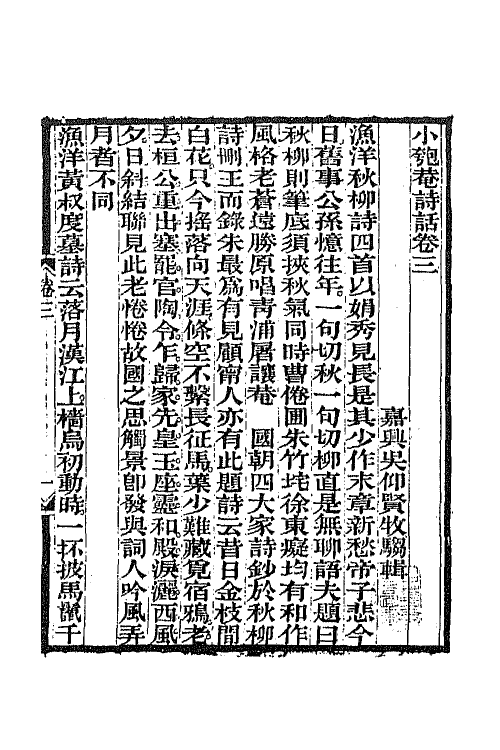 小匏菴詩話卷三
嘉興吳仰賢牧騶輯
漁洋秋柳詩四首以娟秀見長是其少作末章新愁帝子悲今
日舊事公孫憶往年一句切秋一句切柳直是無聊語夫題曰
秋柳則筆底須挾秋氣同時曹倦圃朱竹垞徐東癡均有和作
風格老蒼遠勝原唱靑浦屠讓菴　國朝四大家詩鈔於秋柳
詩刪王而錄朱最爲有見顧甯人亦有此題詩云昔日金枝間
白花只今搖落向天涯條空不繫長征馬葉少難藏覓宿鴉老
去桓公重出塞罷官陶令乍歸家先皇玉座靈和殿淚灑西風
夕日斜結聯見此老惓惓故國之思觸景卽發與詞人吟風弄
月者不同
漁洋黃叔度墓詩云落月漢江上檣烏初動時一抔披馬鬣千
卷三
一